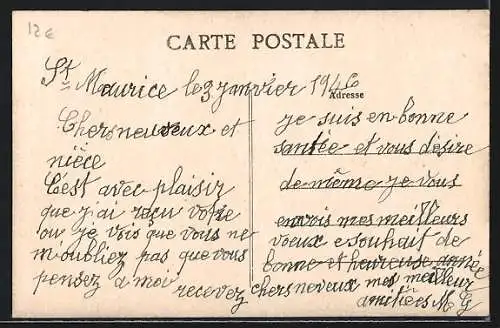 12€
CARTE POSTALE
St Maurice le 3 janvier 1946
Adresse
Chers neveux et
nièce
C'est avec plaisir
que j'ai reçu votre
ou je vois que vous ne
m'oubliez pas que vous
pensez a moi
je suis en bonne
santée et vous désire
de même je vous
envois mes meilleurs
voeux e souhait de
bonne et heureuse année
recevez chers neveux mes meilleur
amitiées M G